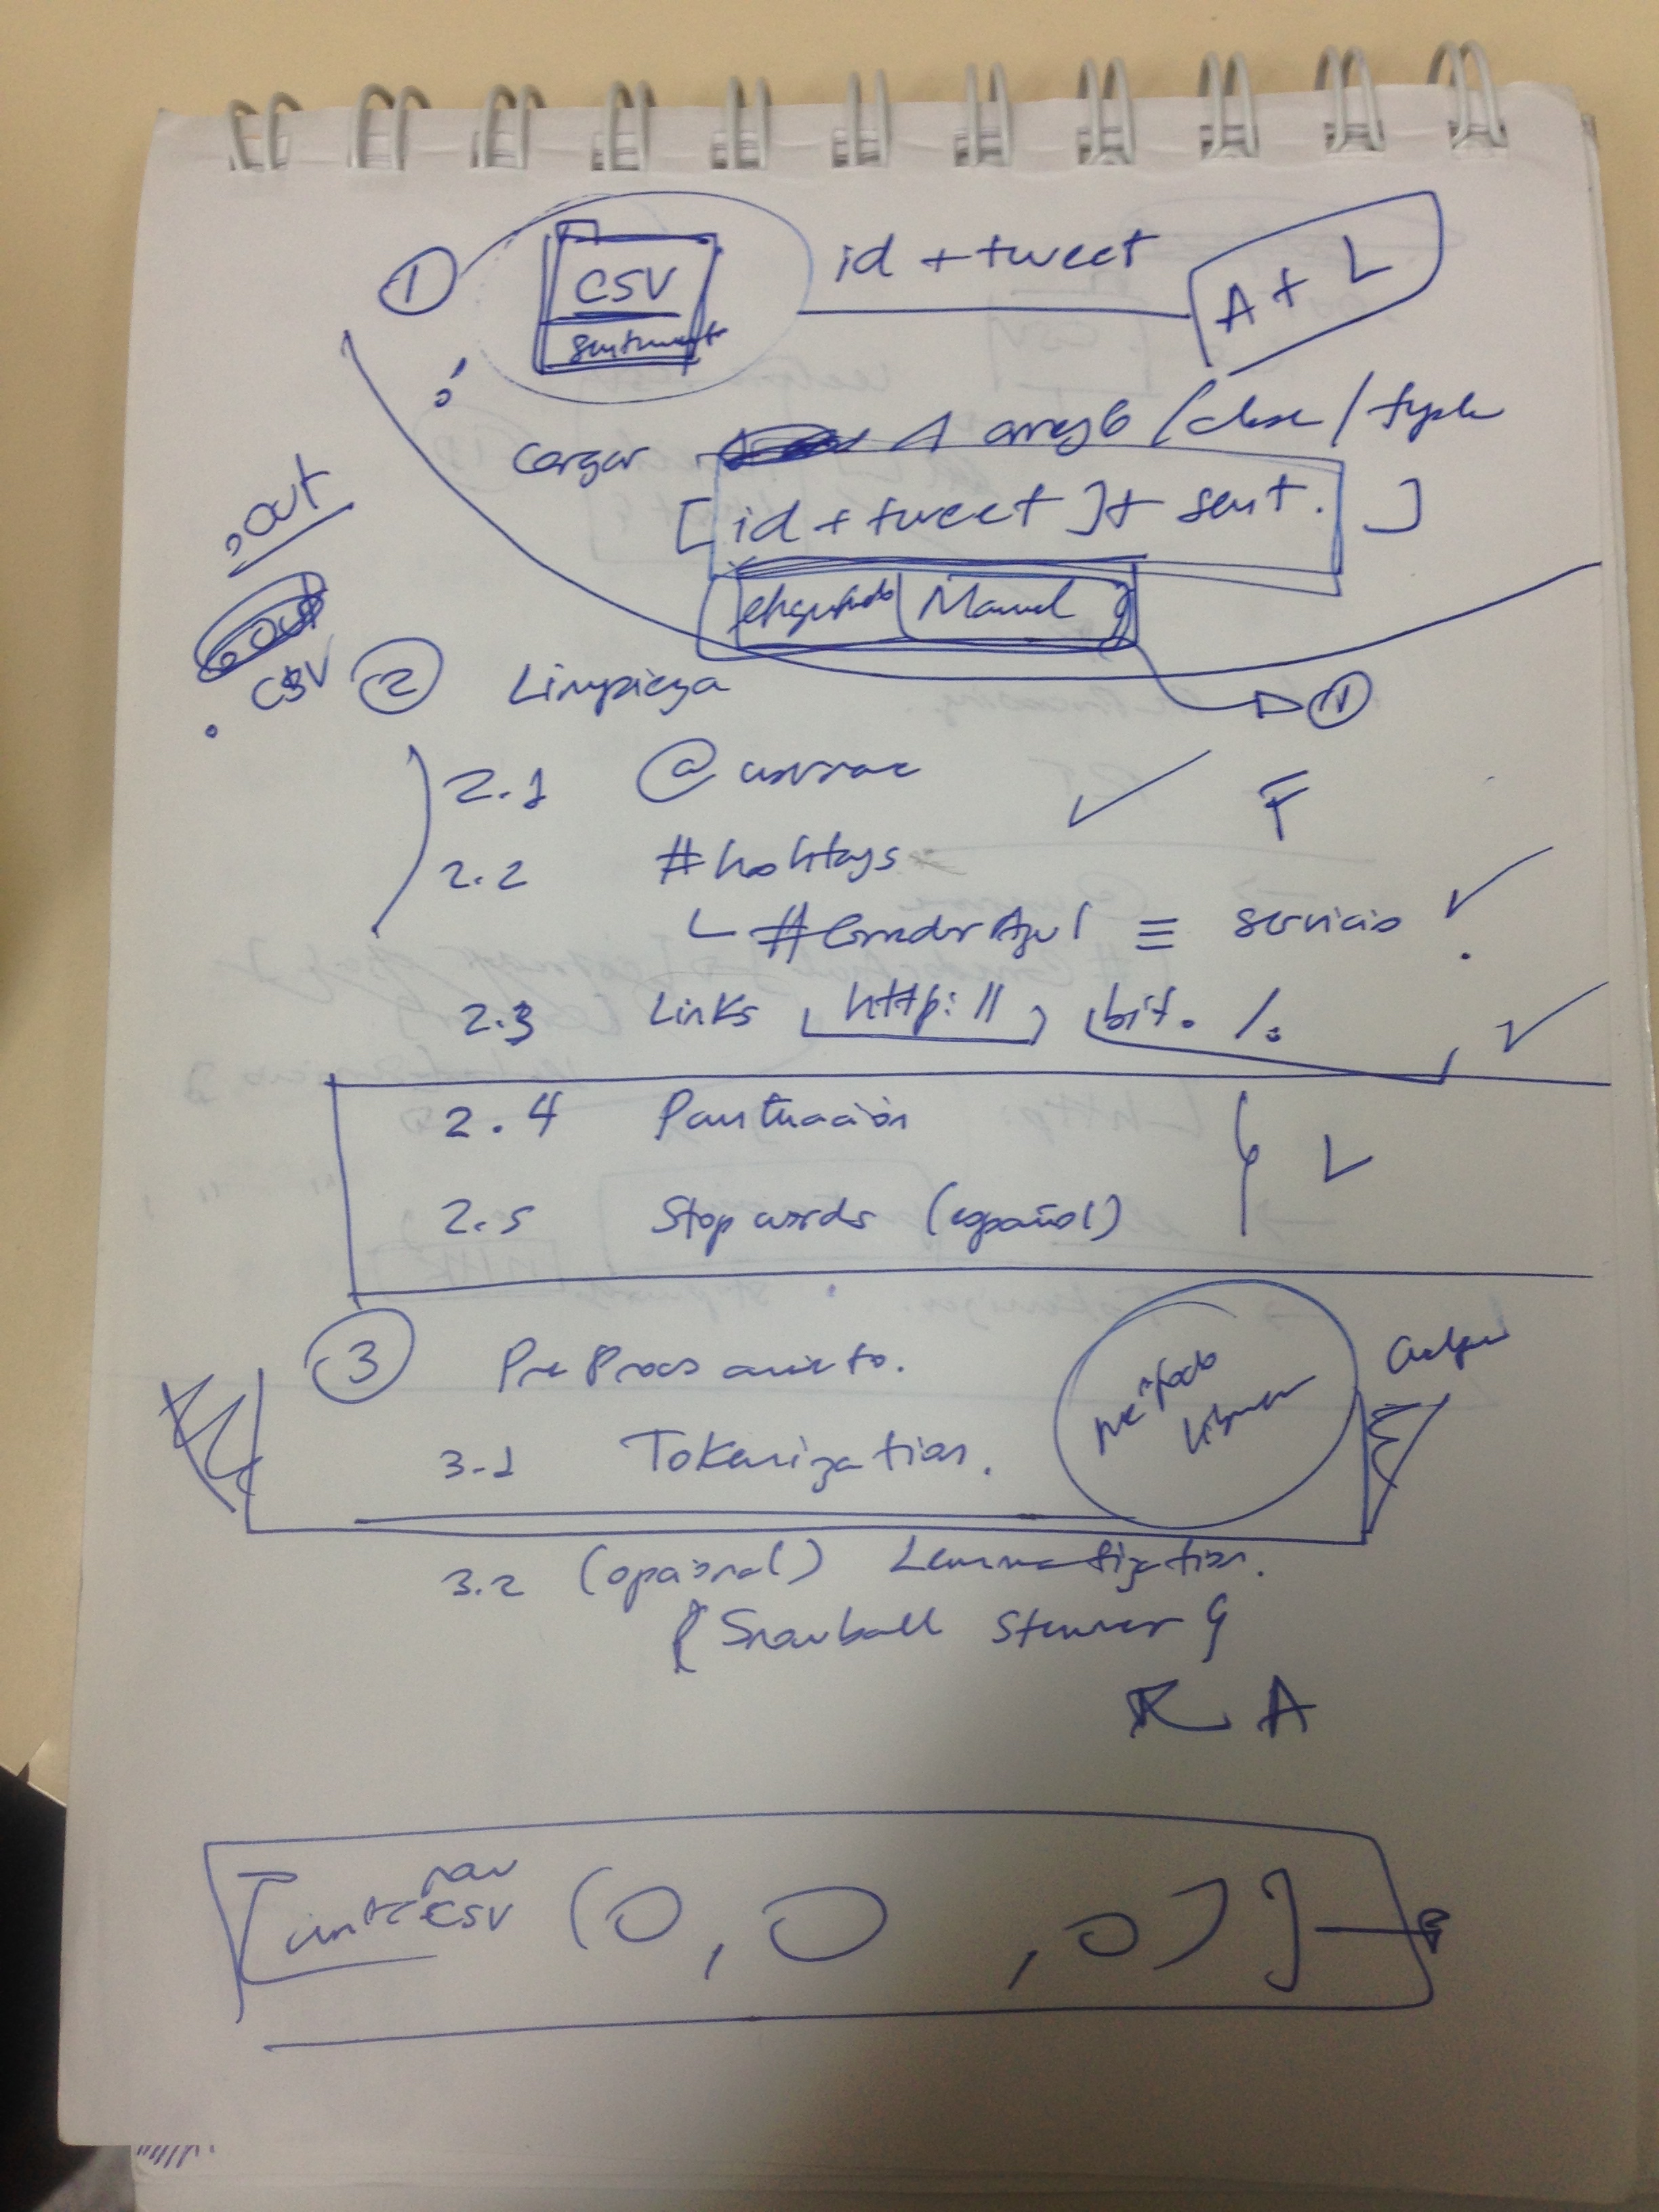 1 CSV id + tweet A + L
sentiment
Cargar A array 6 / clase / tuple
[id + tweet] + sent. ]
.out
etiquetado Manual
.CSV
2 Limpieza
2.1 @ usuario ✓ F
2.2 # hashtags
# CorredorAzul ≡ servicio ✓
2.3 Links http:// bit. /. ✓
2.4 Puntuación
2.5 Stop words (español)
3 PreProcesamiento.
3.1 Tokenization.
Método
3.2 (opcional) Lemmatization.
{ Snowball Stemmer }
R A
row
CSV (0, 0 , 0)]